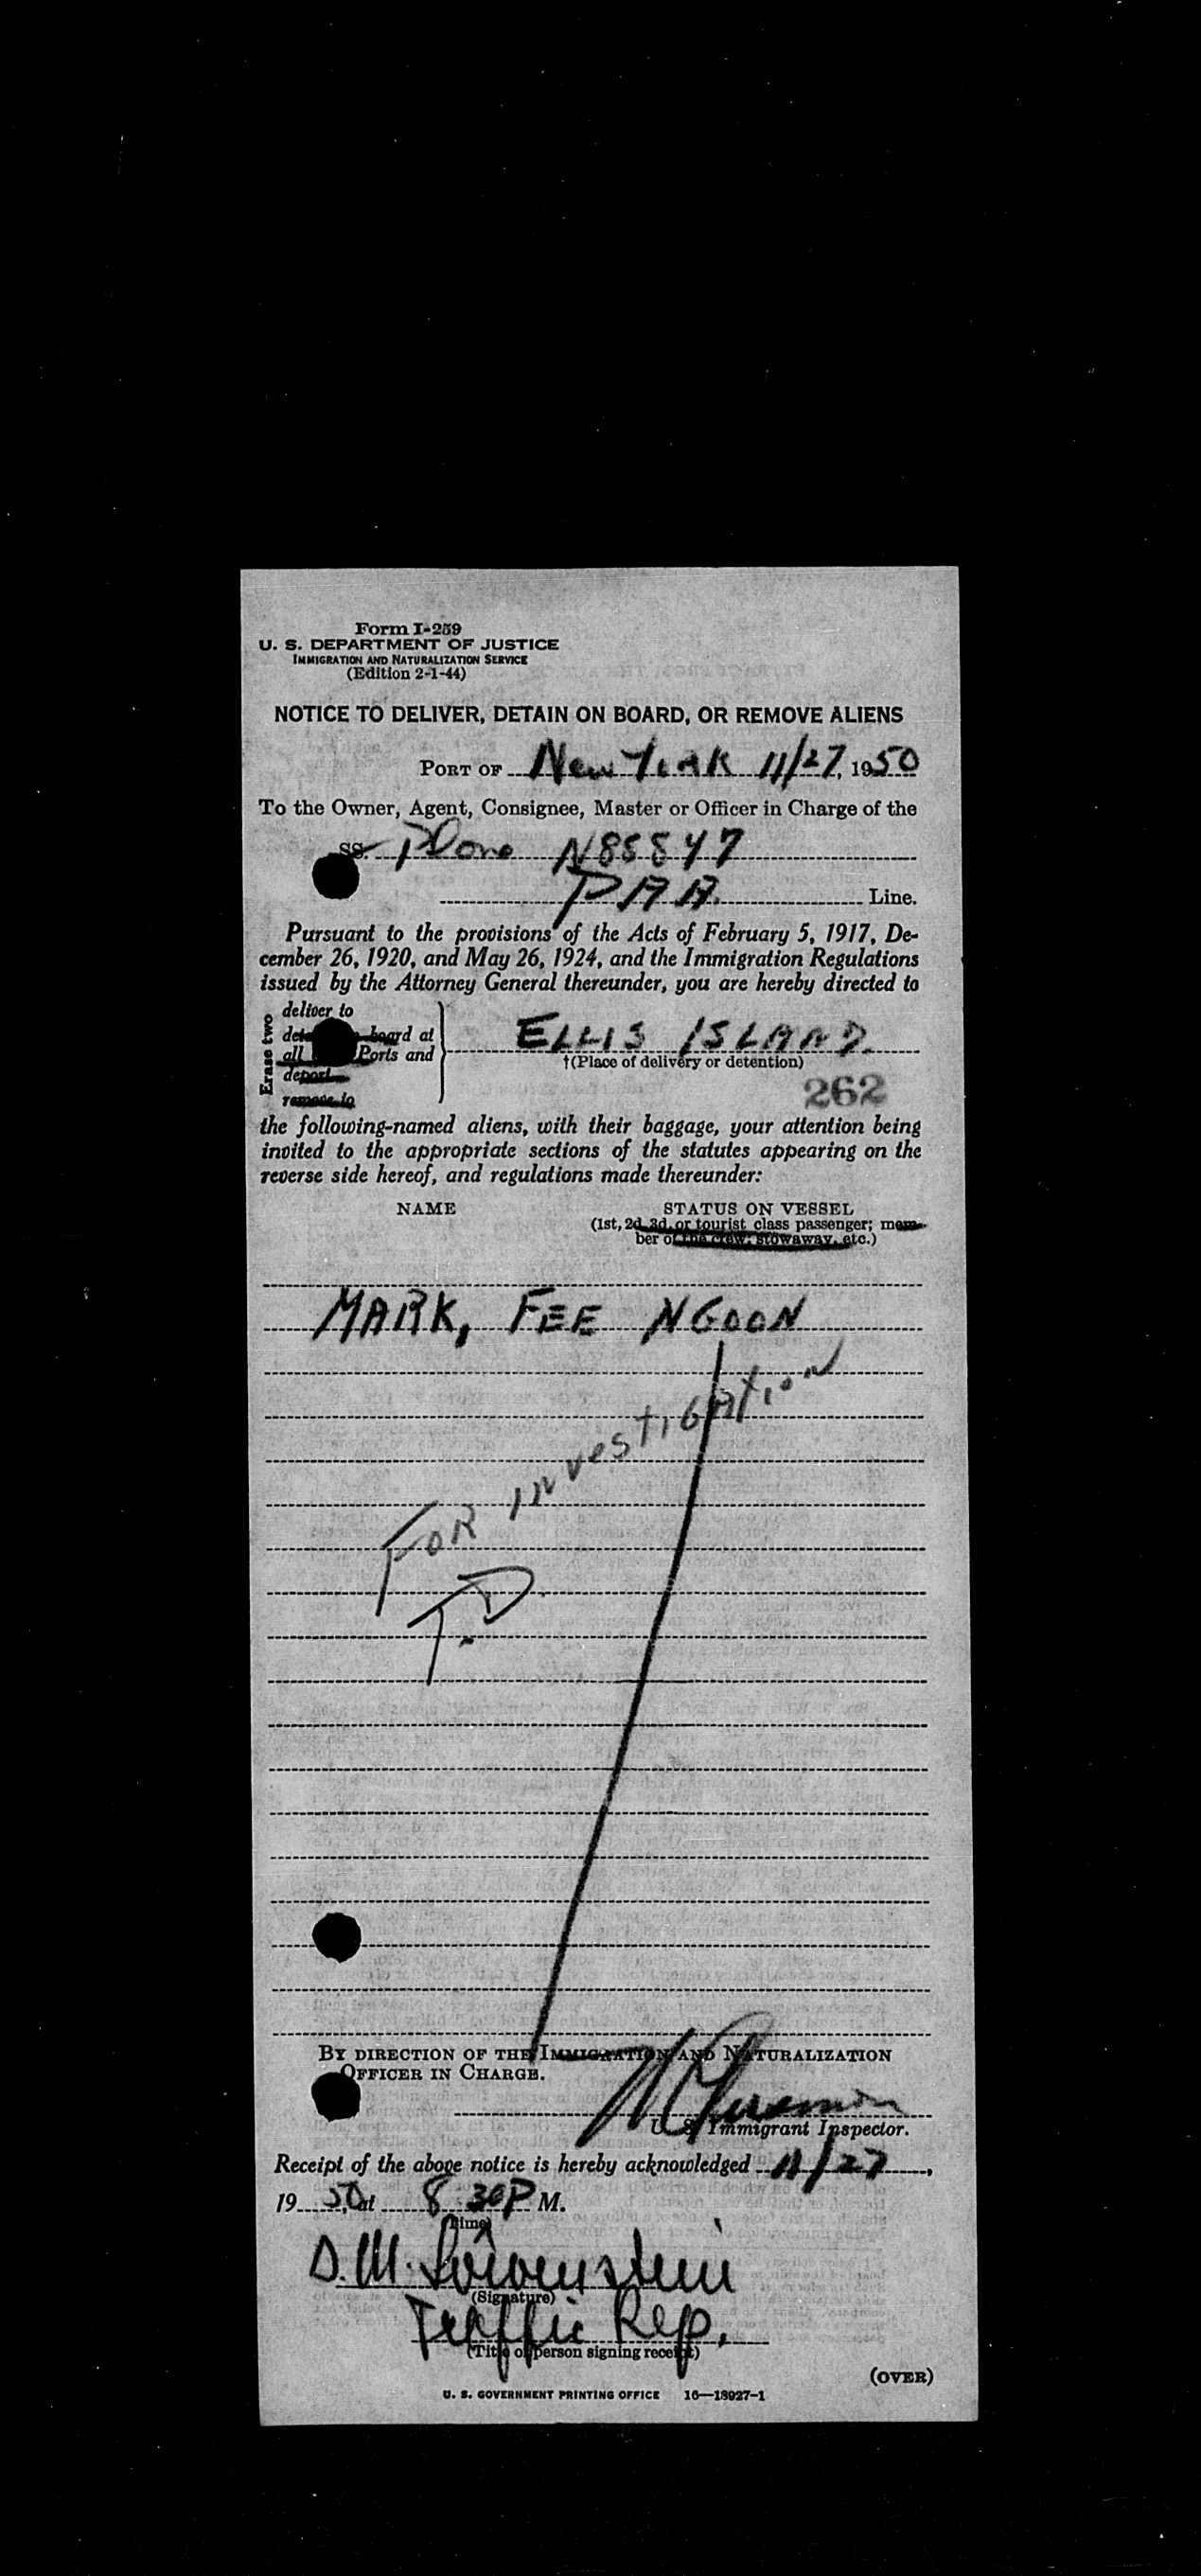 Form I-259
U. S. DEPARTMENT OF JUSTICE
IMMIGRATION AND NATURALIZATION SERVICE
(Edition 2-1-44)
NOTICE TO DELIVER, DETAIN ON BOARD, OR REMOVE ALIENS
PORT OF New York 11/27, 1950
To the Owner, Agent, Consignee, Master or Officer in Charge of the
SS. Plane N88847
PAA. Line.
Pursuant to the provisions of the Acts of February 5, 1917, De-
cember 26, 1920, and May 26, 1924, and the Immigration Regulations
issued by the Attorney General thereunder, you are hereby directed to
Erase two
deliver to
board at
all Ports and
deport
remove to
ELLIS ISLAND.
†(Place of delivery or detention)
262
the following-named aliens, with their baggage, your attention being
invited to the appropriate sections of the statutes appearing on the
reverse side hereof, and regulations made thereunder:
NAME STATUS ON VESSEL
(1st, 2d, 3d, or tourist class passenger; mem-
ber of the crew, stowaway, etc.)
MARK, FEE NGOON
FOR INVESTIGATION
T.D.
BY DIRECTION OF THE IMMIGRATION AND NATURALIZATION
OFFICER IN CHARGE.
U. S. Immigrant Inspector.
Receipt of the above notice is hereby acknowledged 11/27,
19 50, at 8 30 P M.
(Time)
D. M. Lowenstein
(Signature)
Traffic Rep.
(Title of person signing receipt)
(OVER)
U. S. GOVERNMENT PRINTING OFFICE 16—18927-1